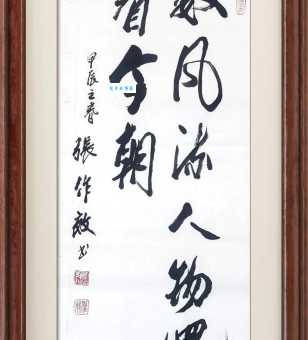 数风流人物還
看今朝
甲辰之春
張作敏书